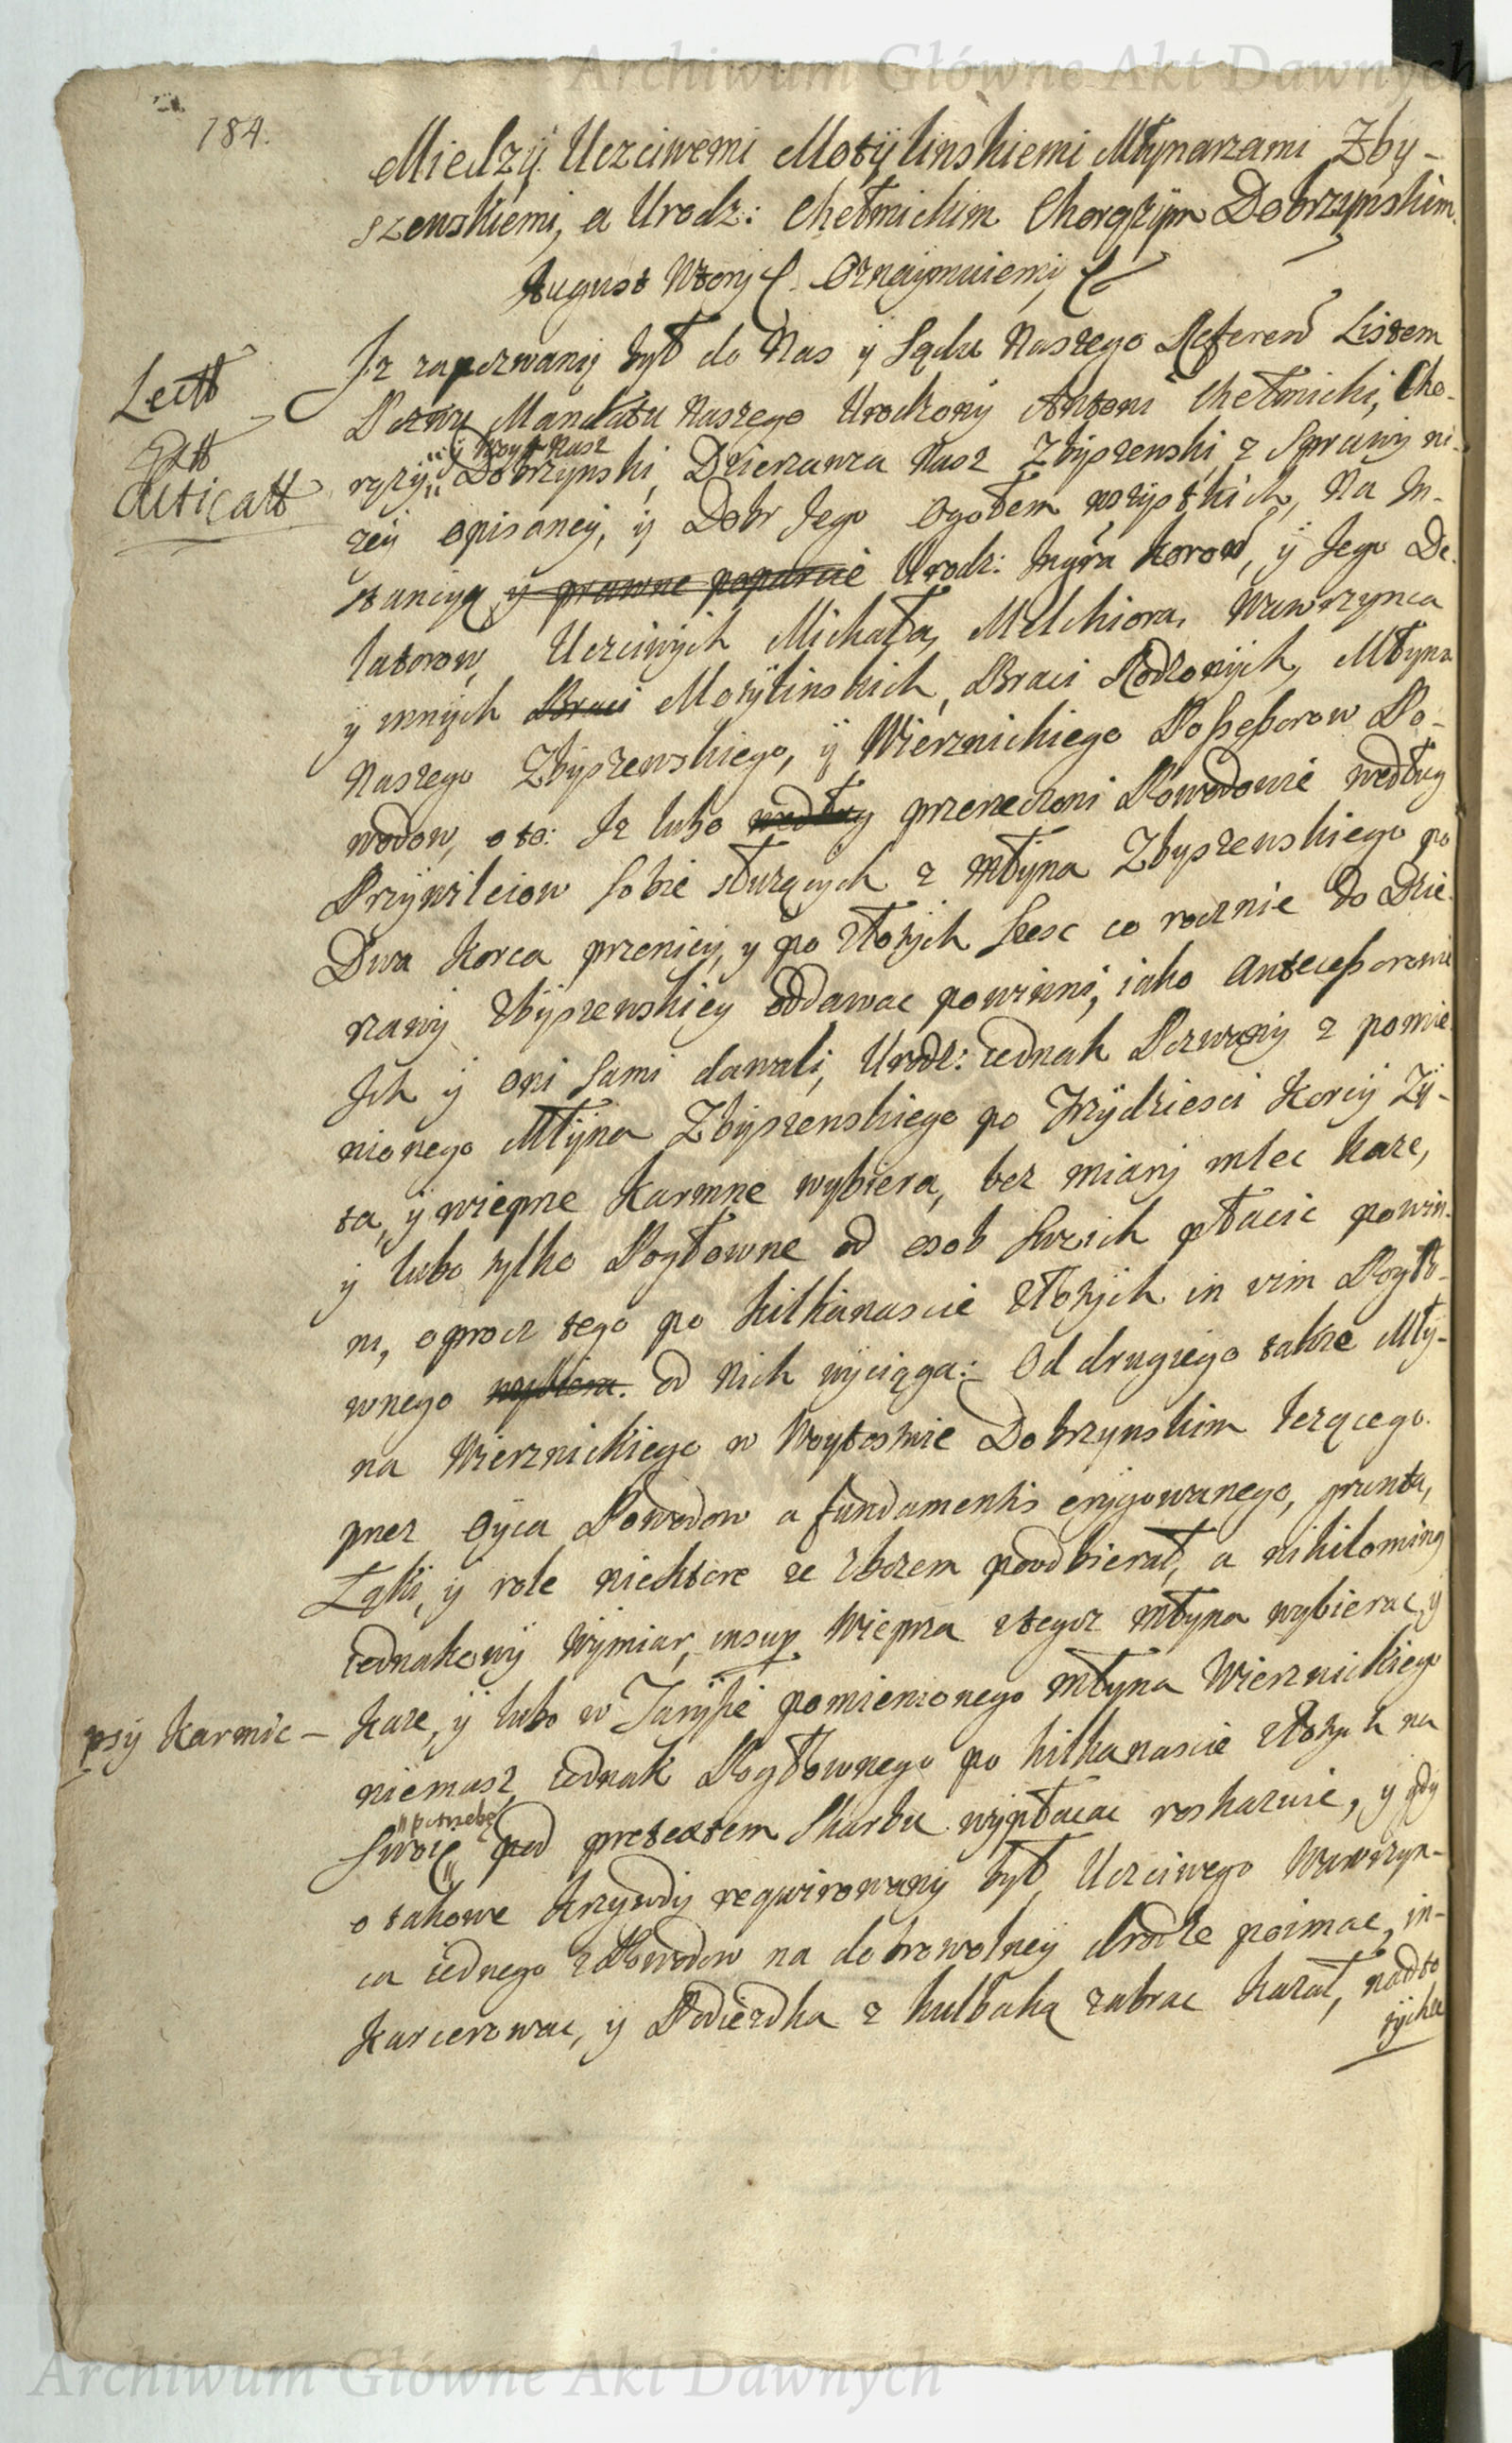 Archiwum Główne Akt Dawnych
184.
Miedzÿ Uczciwemi Motÿlinskiemi Młynarzami Zby-
szewskiemi, a Urodz: Chełmickim Chorązÿm Dobrzynskim.
August Wtory Oznaÿmuiemÿ
Lectt
Extt
Iz zapozwanÿ był do Nas ÿ Sądu Naszego Referen Listem
Pozwu Mandatu Naszego Urodzonÿ Antoni Chełmicki, Cho-
ÿ Woyt Nasz
Altioatt
rązÿ Dobrzynski, Dzierzawca Nasz Zbÿszewski z Sprawÿ ni-
zeÿ opisaneÿ, ÿ Dobr Jego Ogołem wszÿstkich, Na In-
stancÿą ÿ prawne poparcie Urodz: Insgra Koron, ÿ Jego De-
latorow, Uczciwÿch Michała, Melchiora, Wawrzynca
ÿ innÿch Braci Motÿlinskich, Braci Rodzonÿch, Młyna
Naszego Zbÿszewskiego, ÿ Wierznickiego Possessorow Po-
wodow, oto: Iz lubo według przerzeczoni Powodowie według
Przÿwileiow sobie słuzącÿch z młyna Zbyszewskiego po
Dwa Korca przenicÿ, y po złotÿch szesc co rocznie do Dzie-
rzawÿ Zbÿszewskiey oddawac powinni, iako Antecessorowie
Ich ÿ oni sami dawali, Urodz: iednak Pozwanÿ z pomie-
nionego Młÿna Zbÿszewskiego po Trzÿdziesci Korcÿ Zÿ-
ta, ÿ wieprze Karmne wybiera, bez miarÿ mlec kaze,
ÿ lubo tylko Pogłowne od osob swzich płacic powin-
ni, oprocz tego po kilkanascie złotÿch in vim Pogło-
wnego wybiera. od nich wÿciąga: Od drugiego takze Mły-
na Wierznickiego w Woytostwie Dobrzynskim lezącego.
przez Oÿca Powodow a fundamentis erÿgowanego, grunta,
Łąki, ÿ role niektore ze zbozem poodbierał, a nihilominq
iednakowÿ Wÿmiar, insup Wieprza ztegoz młyna wybierac, ÿ
psÿ karmic — kaze, ÿ lubo w Taryfie pomienionego młyna Wierznickiego
niemasz, iednak Pogłownego po kilkanascie złotÿch na
potrzebę
Swoię pod pretextem Skarbu wÿpłacac roskazuie, ÿ gdy
o takowe Krzywdÿ requirowanÿ był, Uczciwego Wawrzyn-
ca iednego z Powodow na dobrowolneÿ drodze poimac, in-
karcerowac, ÿ Podiezdka z kulbaką zabrac kazał, nadto
tÿchze
Archiwum Główne Akt Dawnych